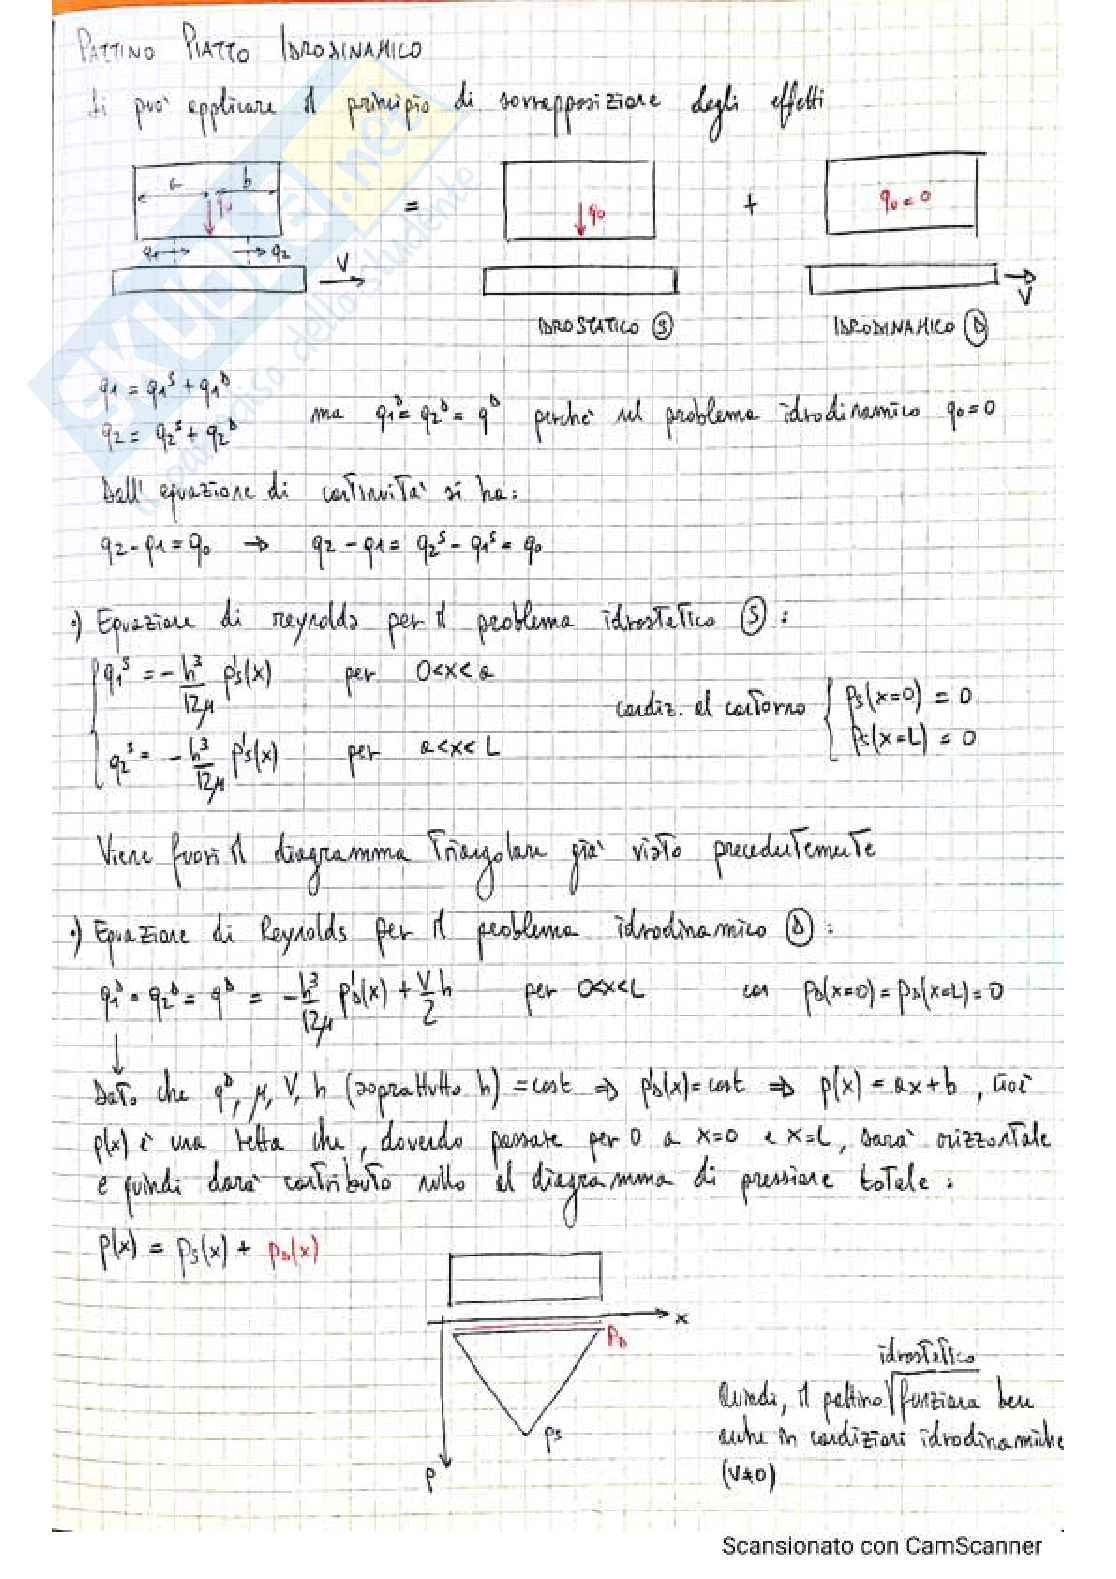 PATTINO PIATTO IDRODINAMICO
Si può applicare il principio di sovrapposizione degli effetti
a b
q0
q1 q2
V
=
q0
+
q0 = 0
V
IDROSTATICO Ⓢ
IDRODINAMICO Ⓓ
q1 = q1^S + q1^D
q2 = q2^S + q2^D
ma q1^D = q2^D = q^D perché nel problema idrodinamico q0=0
Dall' equazione di continuità si ha:
q2 - q1 = q0 ⇒ q2 - q1 = q2^S - q1^S = q0
•) Equazione di reynolds per il problema idrostatico Ⓢ :
q1^S = - h³/12μ p's(x) per 0<x<a
q2^S = - h³/12μ p's(x) per a<x<L
condiz. al contorno { ps(x=0) = 0
ps(x=L) = 0
Viene fuori il diagramma triangolare già visto precedentemente
•) Equazione di Reynolds per il problema idrodinamico Ⓓ :
q1^D = q2^D = q^D = - h³/12μ p'D(x) + V/2 h per 0<x<L con pD(x=0) = pD(x=L) = 0
↓
Dato che q^D, μ, V, h (soprattutto h) = cost ⇒ p'D(x) = cost ⇒ p(x) = ax + b , cioè
p(x) è una retta che, dovendo passare per 0 a x=0 e x=L, sarà orizzontale
e quindi darà contributo nullo al diagramma di pressione totale :
p(x) = ps(x) + pD(x)
x
pD
ps
p
idrostatico
Quindi, il pattino funziona bene
anche in condizioni idrodinamiche
(V≠0)
SKUOLA.net
il paradiso dello studente
Scansionato con CamScanner